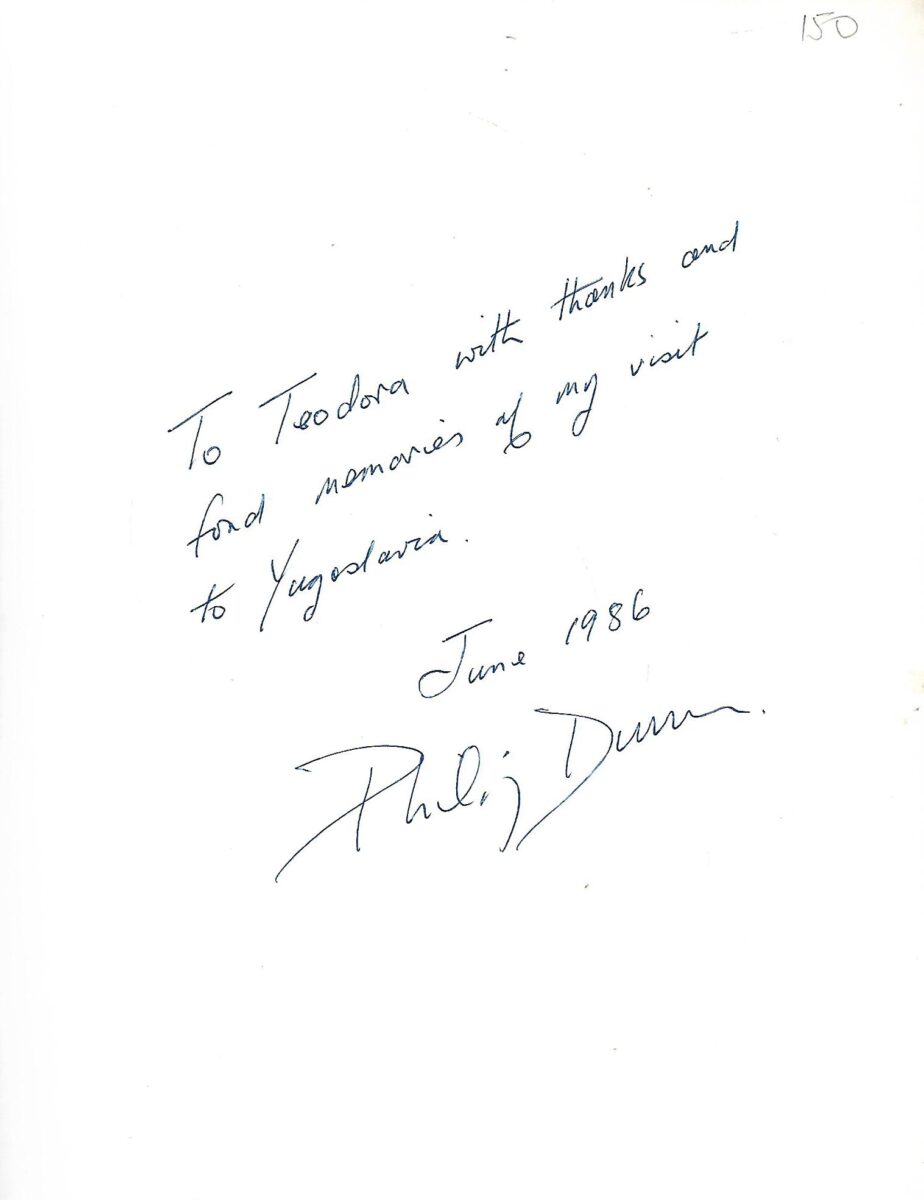 150
To Teodora with thanks and
fond memories of my visit
to Yugoslavia.
June 1986
Philip Dunn.